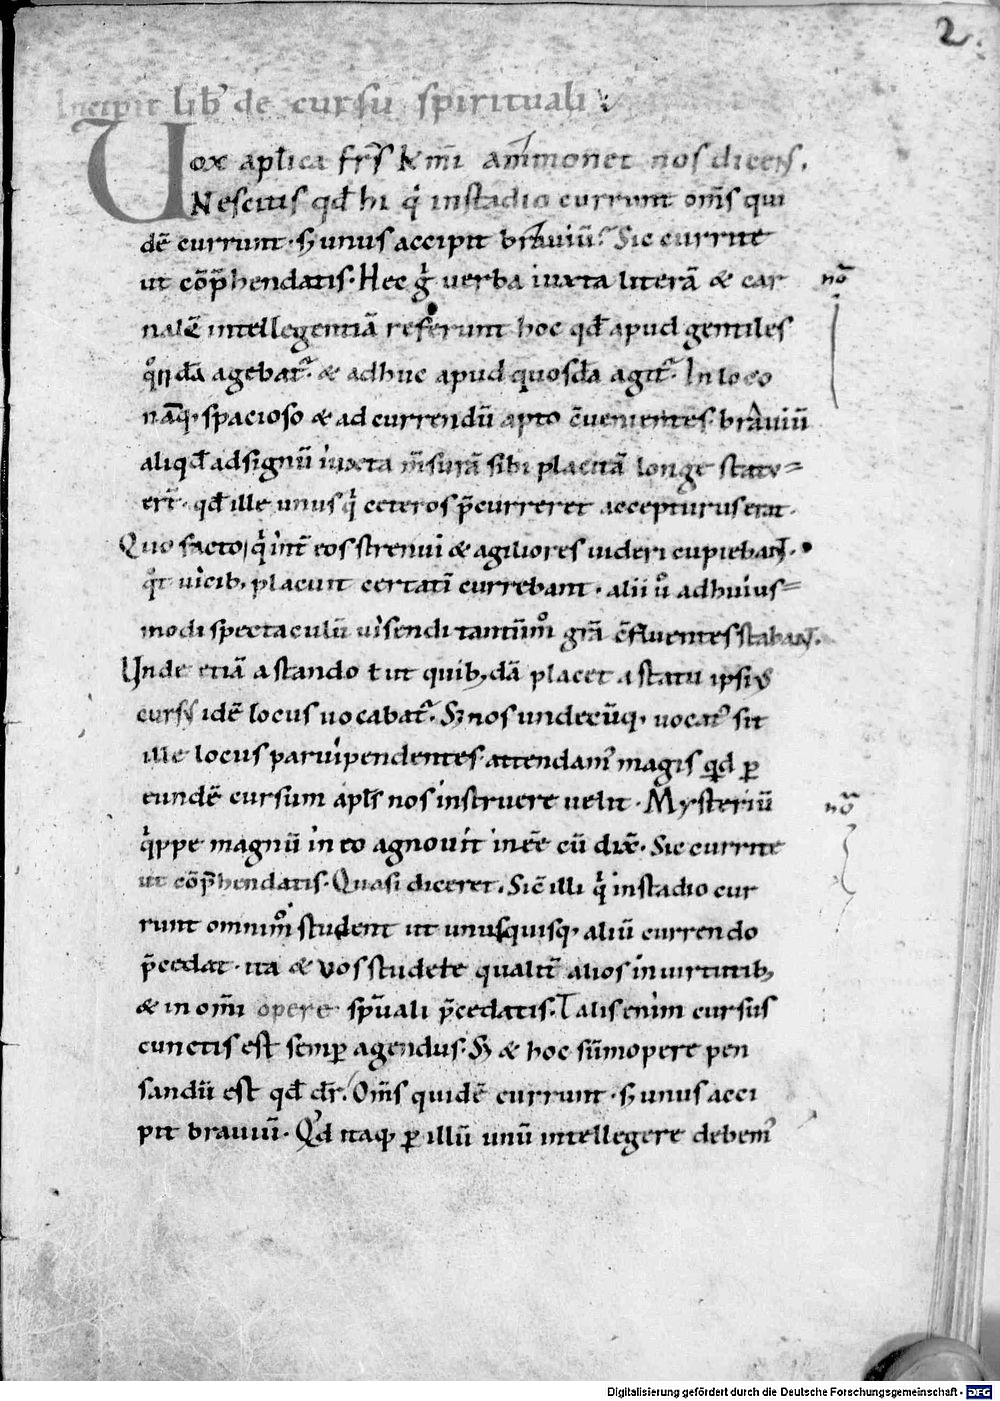 2
Incipit lib̄ de cursu spirituali
Uox apl̄ica fr̄s km̄i ammonet nos dicens.
Nescitis qđ hi q̇ in stadio currunt om̄s qui
dē currunt · s; unus accipit braviū? Sic currite
ut cōp̄hendatis · Hec ġ verba iuxta literā & car
nalē intellegentiā referunt hoc qđ apud gentiles
qͦndā agebat᷑ · & adhuc apud quosdā agit᷑ · In loco
nāq; spacioso & ad currendū apto c̄venientes · braviū
aliqđ ad signū iuxta m̄surā sibi placitā longe statu=
er̄t · qđ ille unus q̇ ceteros p̄curreret accepturus erat ·
Quo facto, q̇ int̄ eos strenui & agiliores videri cupiebant ·
qͦt vicib; placuit certatī currebant · alii ů ad huius=
modi spectaculū visendi tantūmͦ grā c̄fluentes stabant.
Unde etiā a stando ł ut quib;dā placet a statu ipsius
cursus idē locus vocabat᷑ · S; nos undecūq; vocat᷑ sit
ille locus parvipendentes attendam᷒ magis quid ꝑ
eundē cursum apl̄s nos instruere velit · Mysteriū
q̇ppe magnū in eo agnovit inēē cū dix̄ · Sic currite
ut cōp̄hendatis · Quasi diceret. Sic illi q̇ in stadio cur
runt omnimͦ student ut unusquisq; aliū currendo
p̄cedat · ita & vos studete qualit̄ alios in virtutib;
& in om̄i opere sp̄uali p̄cedatis · Talis enim cursus
cunctis est semꝑ agendus · S; & hoc sūmopere pen
sandū est qđ dr̄. Om̄s quidē currunt · s; unus acci
pit braviū · Qđ itaq; ꝑ illū unū intellegere debem᷒
nō
nō
Digitalisierung gefördert durch die Deutsche Forschungsgemeinschaft - DFG